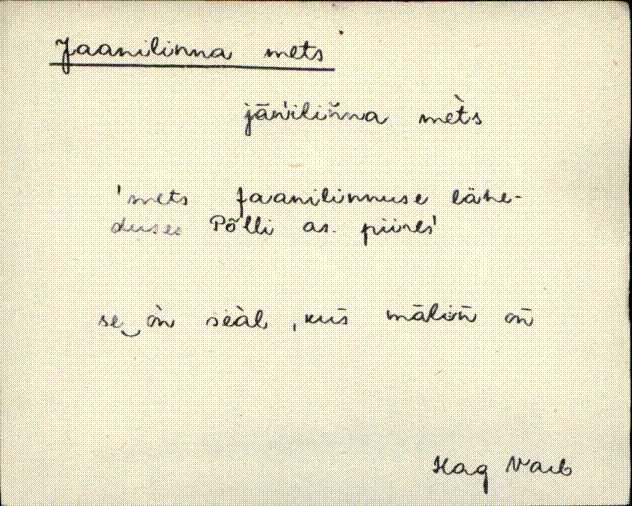 Jaanilinna mets
jāńilin̆na mèts
'mets Jaanilinnuse lähe-
duses Põlli as. piires'
se‿òn seàl, kus̄ mālin̄ on̄
Hag Vaib